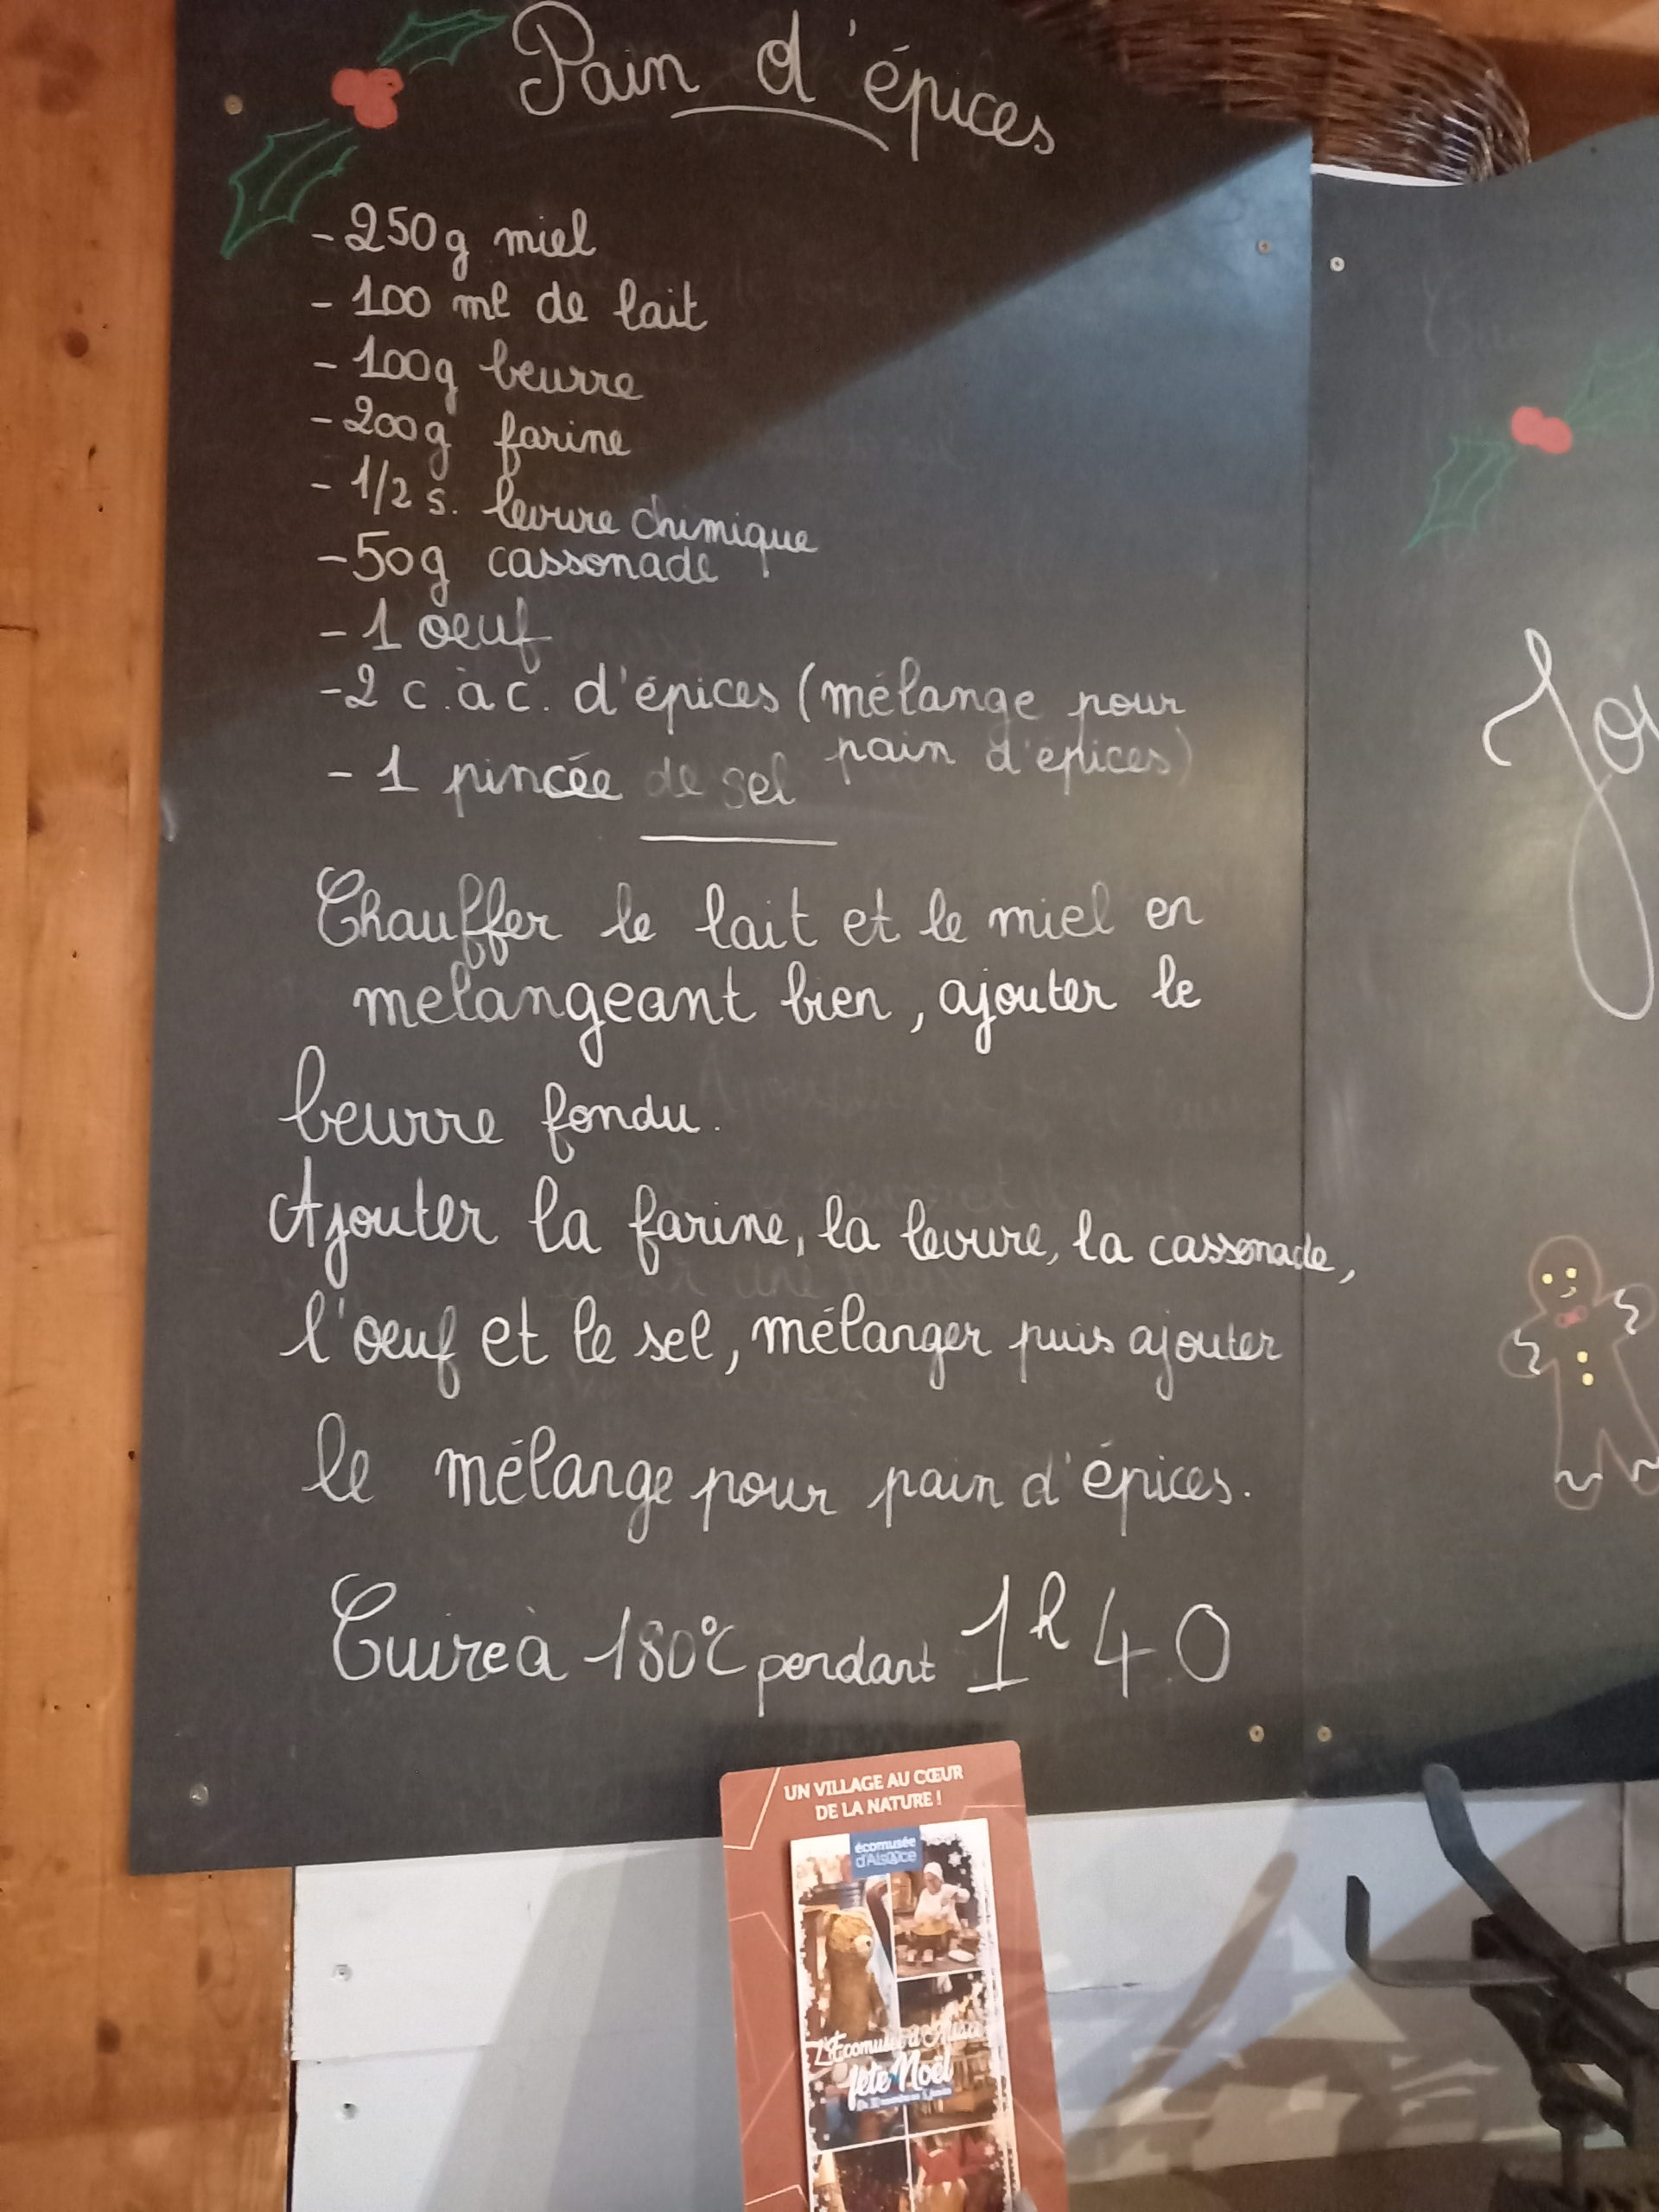 Pain d'épices
- 250g miel
- 100 ml de lait
- 100g beurre
- 200g farine
- 1/2 s. levure chimique
- 50g cassonade
- 1 oeuf
- 2 c.à c. d'épices (mélange pour
pain d'épices)
- 1 pincée de sel
Chauffer le lait et le miel en
melangeant bien, ajouter le
beurre fondu.
Ajouter la farine, la levure, la cassonade,
l'oeuf et le sel, mélanger puis ajouter
le mélange pour pain d'épices.
Cuire à 180°C pendant 1h40
Jo
UN VILLAGE AU CŒUR
DE LA NATURE !
écomusée
d'Alsace
L'Ecomusée d'Alsace
fête Noël